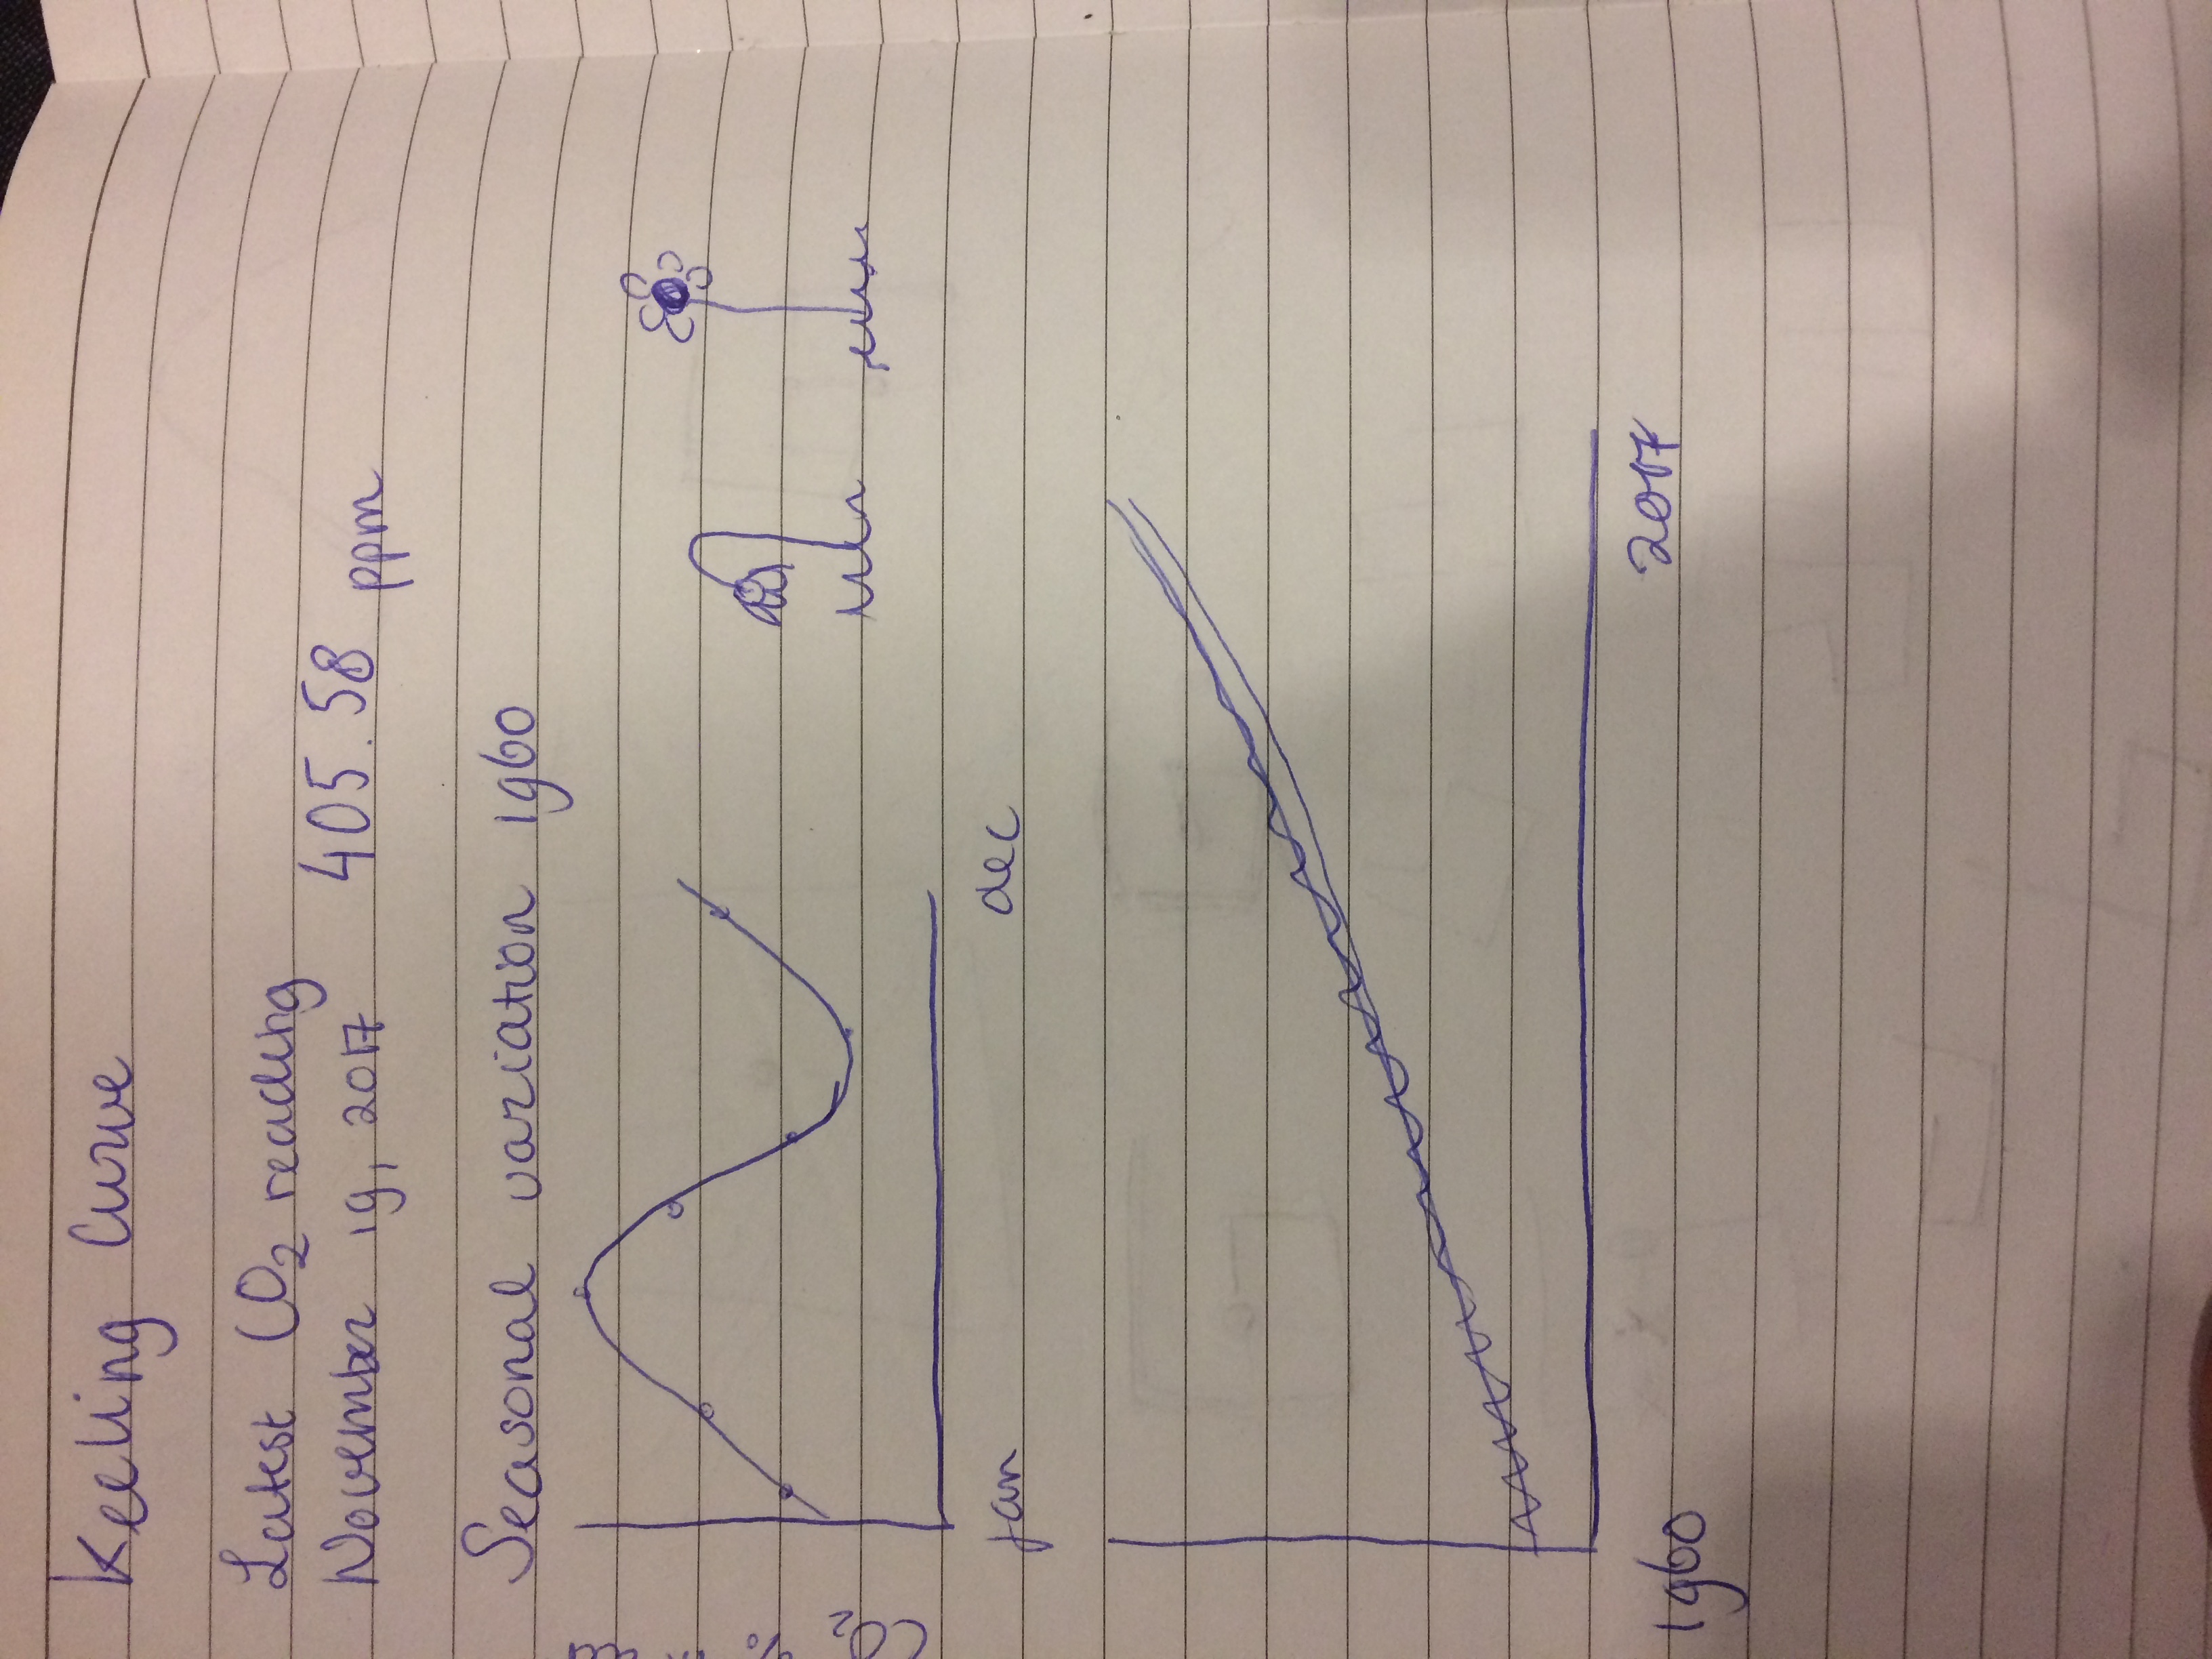 Keeling Curve
Latest CO2 reading
November 19, 2017 405.58 ppm
Seasonal variation 1960
CO2 % in air
jan dec
1960 2017